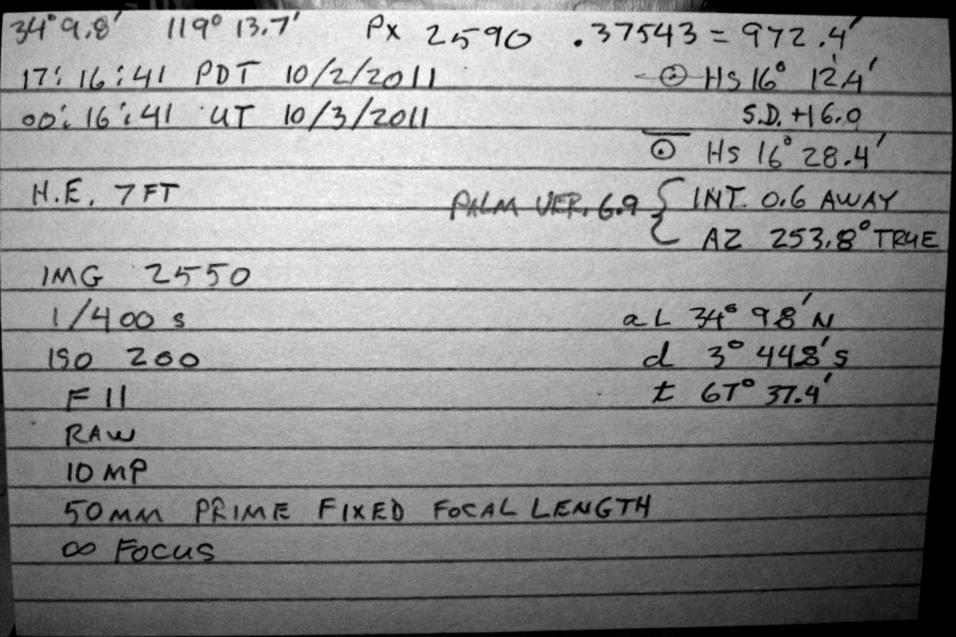 34° 9.8' 119° 13.7' PX 2590 .37543 = 972.4'
17:16:41 PDT 10/2/2011 ⊙ HS 16° 12.4'
00:16:41 UT 10/3/2011 S.D. +16.0
⊙ HS 16° 28.4'
H.E. 7 FT PALM VER. 6.9 { INT. 0.6 AWAY
AZ 253.8° TRUE
IMG 2550
1/400 s aL 34° 9.8' N
ISO 200 d 3° 44.8' S
F 11 t 67° 37.4'
RAW
10 MP
50MM PRIME FIXED FOCAL LENGTH
∞ FOCUS